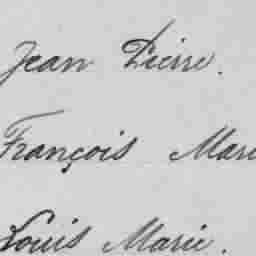 Jean Pierre.
François Marie
Louis Marie.